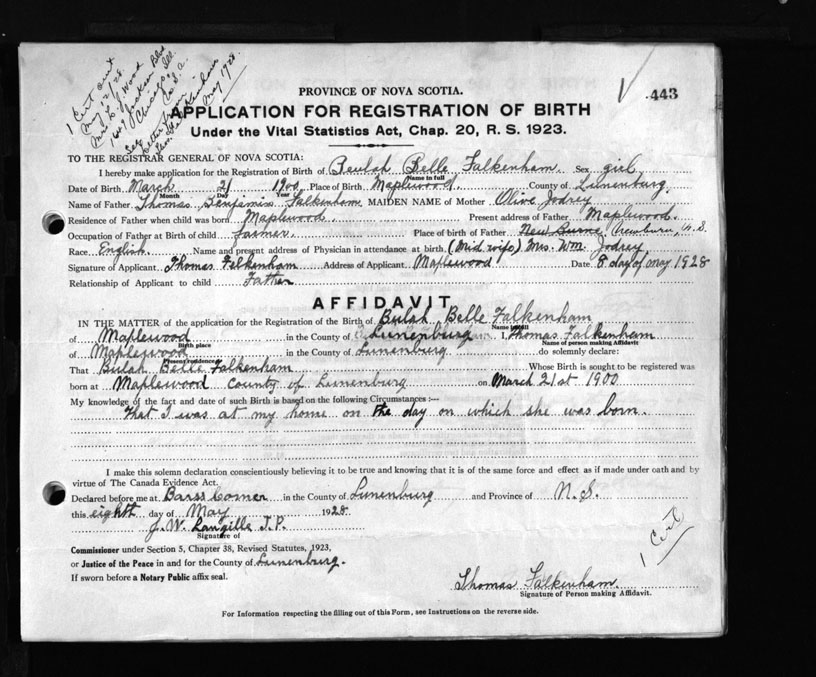 1 Cert sent
May 12/28
Mrs L. J. Wood
Chicago, Ill
U.S.A.
See letter from
May 1928
PROVINCE OF NOVA SCOTIA.
443
APPLICATION FOR REGISTRATION OF BIRTH
Under the Vital Statistics Act, Chap. 20, R. S. 1923.
TO THE REGISTRAR GENERAL OF NOVA SCOTIA:
I hereby make application for the Registration of Birth of Beulah Belle Falkenham. Sex girl
Name in full
Date of Birth March 21 1900 Place of Birth Maplewood. County of Lunenburg.
Month Day Year
Name of Father Thomas Benjamin Falkenham MAIDEN NAME of Mother Olive Jodrey
Residence of Father when child was born Maplewood. Present address of Father Maplewood.
Occupation of Father at Birth of child farmer. Place of birth of Father New Burne (Newburn, N.S.
Race English. Name and present address of Physician in attendance at birth (Mid wife) Mrs. Wm. Jodrey
Signature of Applicant Thomas Felkenham Address of Applicant Maplewood Date 8 day of may 1928
Relationship of Applicant to child Father
AFFIDAVIT
IN THE MATTER of the application for the Registration of the Birth of Bulah Belle Falkenham
Name in full
of Maplewood in the County of Lunenburg I, Thomas Falkenham
Birth place Name of person making Affidavit
of Maplewood in the County of Lunenburg do solemnly declare:
Present residence
That Bulah Belle Falkenham Whose Birth is sought to be registered was
born at Maplewood County of Lunenburg on March 21st 1900
My knowledge of the fact and date of such Birth is based on the following Circumstances :—
That I was at my home on the day on which she was born.
I make this solemn declaration conscientiously believing it to be true and knowing that it is of the same force and effect as if made under oath and by
virtue of The Canada Evidence Act.
Declared before me at Barss Corner in the County of Lunenburg and Province of N.S.
this eighth day of May 1928
J. W. Langille J.P.
Signature of
Commissioner under Section 5, Chapter 38, Revised Statutes, 1923,
or Justice of the Peace in and for the County of Lunenburg.
If sworn before a Notary Public affix seal.
1 Cert
Thomas Falkenham
Signature of Person making Affidavit.
For Information respecting the filling out of this Form, see Instructions on the reverse side.